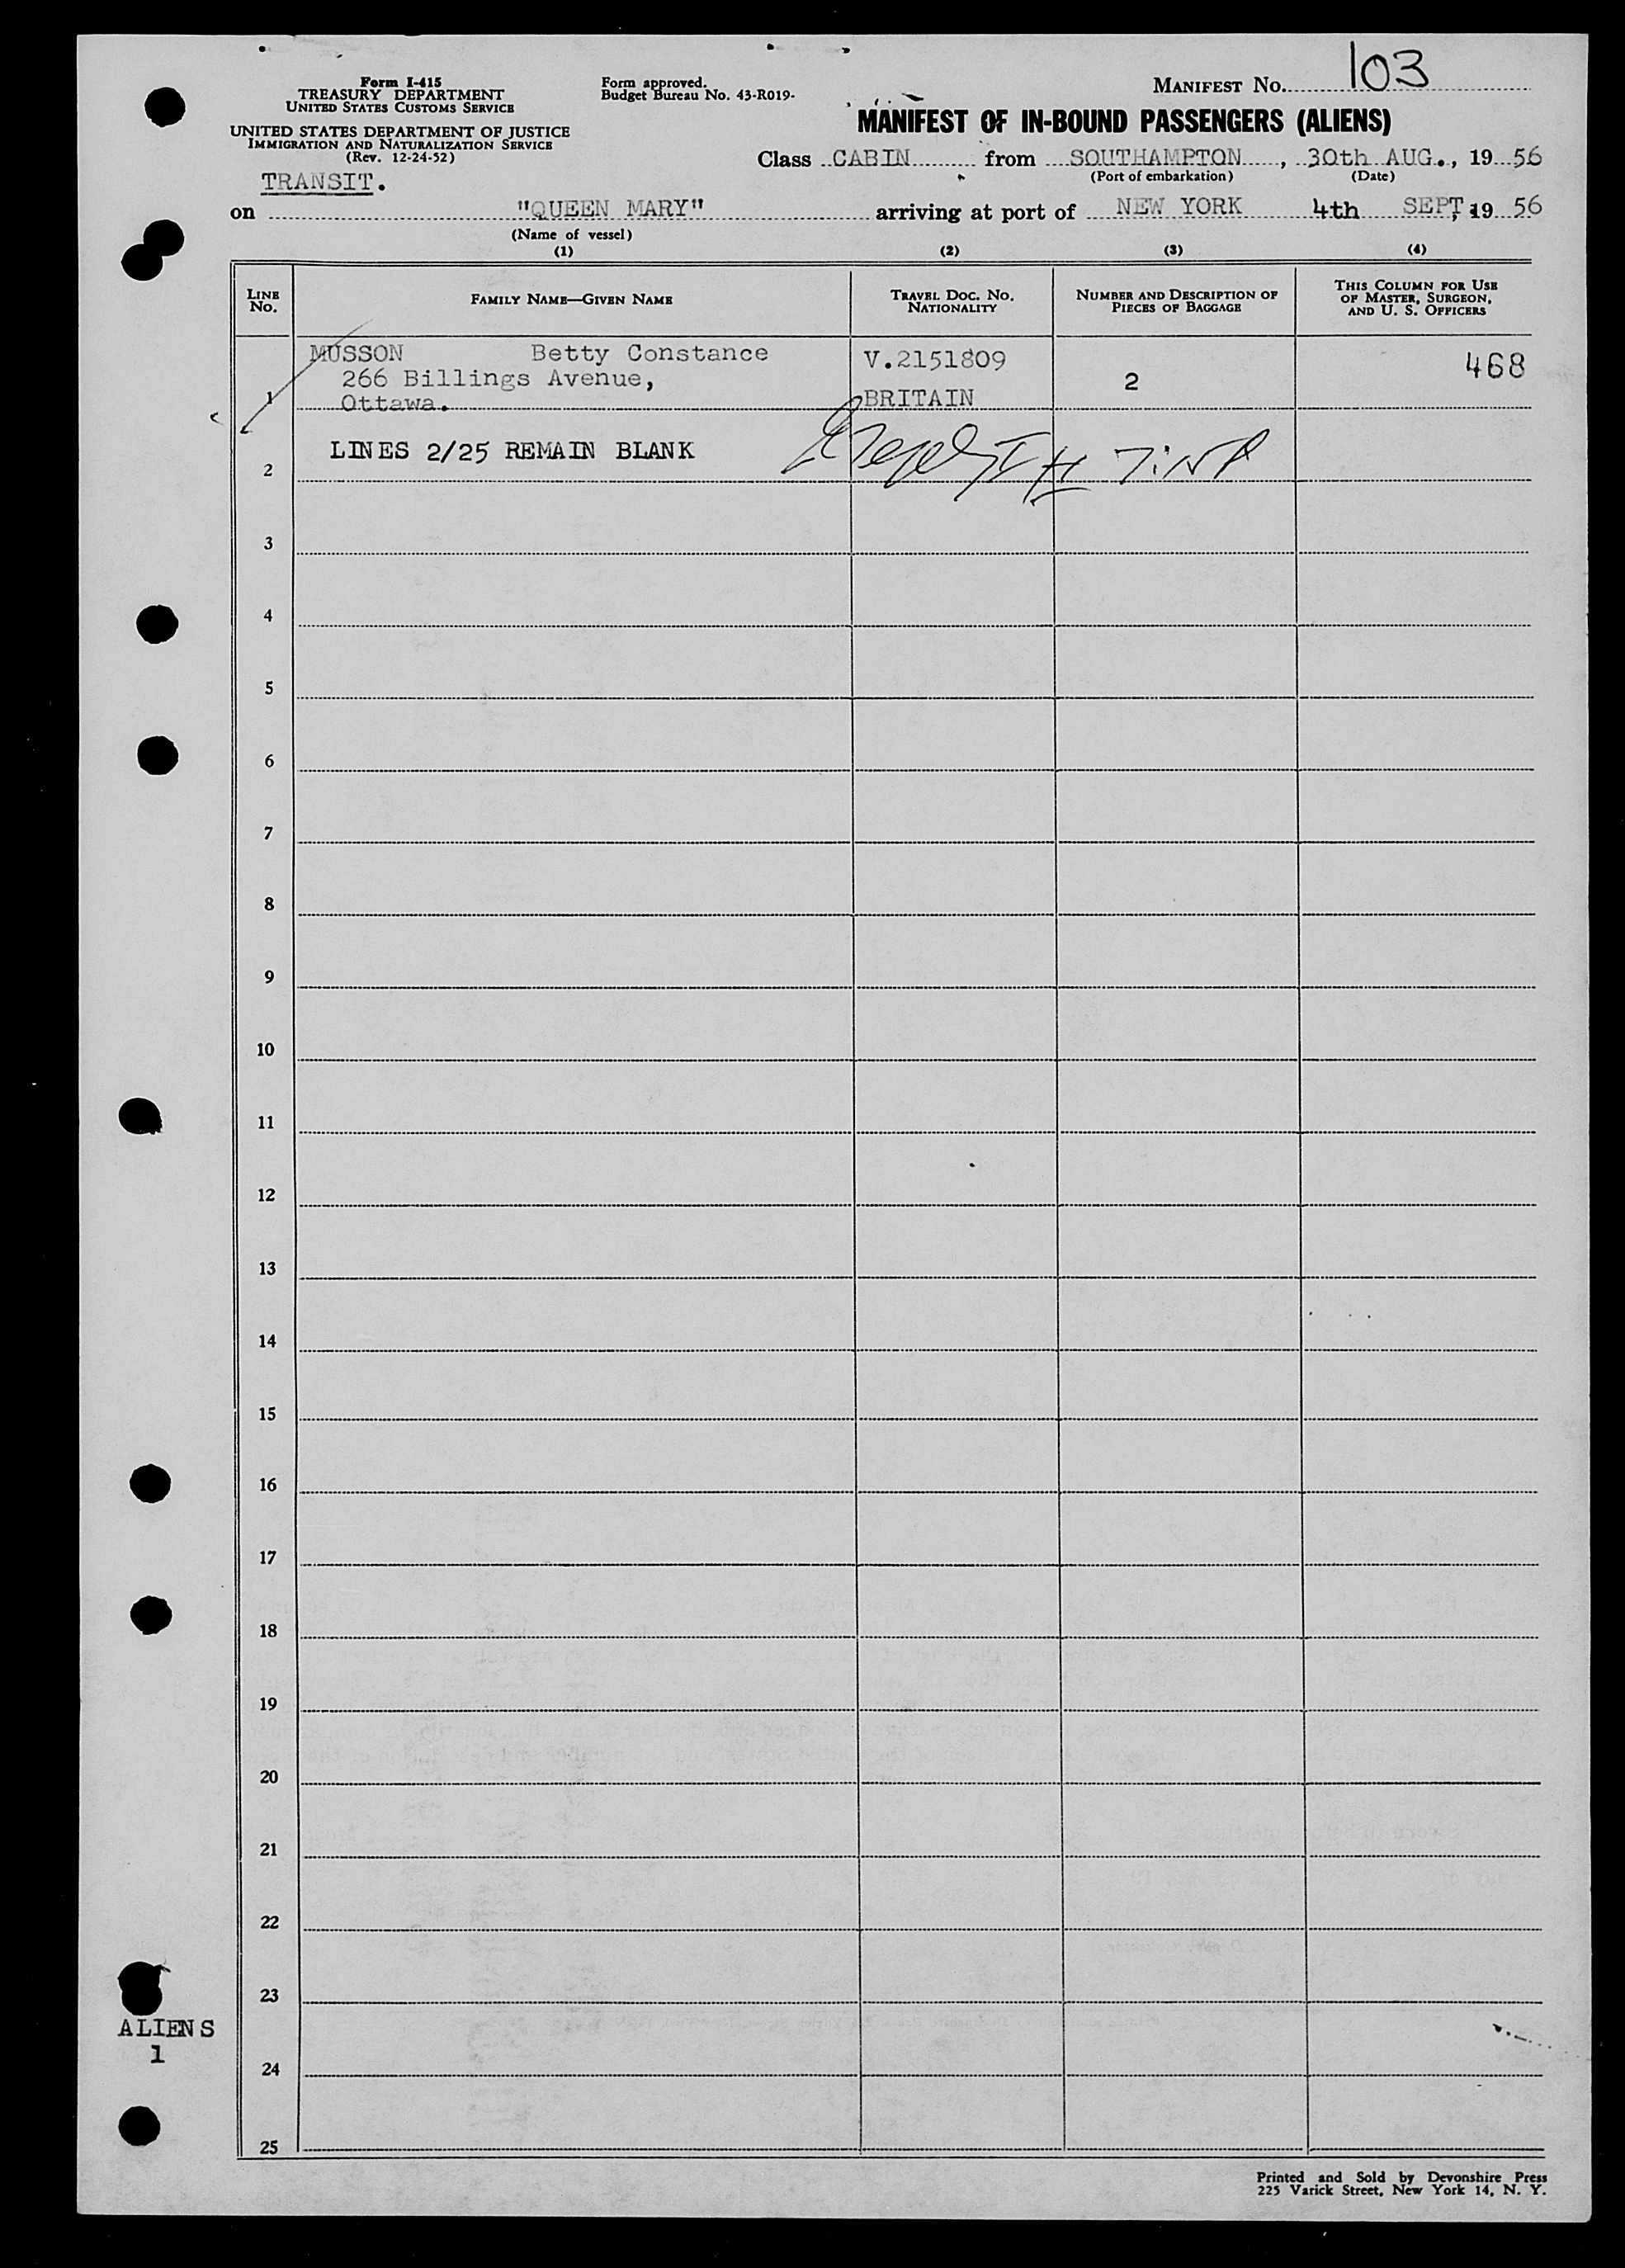 Form I-415
TREASURY DEPARTMENT
UNITED STATES CUSTOMS SERVICE
UNITED STATES DEPARTMENT OF JUSTICE
IMMIGRATION AND NATURALIZATION SERVICE
(Rev. 12-24-52)
TRANSIT.
Form approved.
Budget Bureau No. 43-R019-
MANIFEST No. 103
MANIFEST OF IN-BOUND PASSENGERS (ALIENS)
Class CABIN from SOUTHAMPTON, 30th AUG., 19 56
(Port of embarkation) (Date)
on "QUEEN MARY" arriving at port of NEW YORK 4th SEPT, 19 56
(Name of vessel)
(1) (2) (3) (4)
LINE No. FAMILY NAME—GIVEN NAME TRAVEL DOC. No. NATIONALITY NUMBER AND DESCRIPTION OF PIECES OF BAGGAGE THIS COLUMN FOR USE OF MASTER, SURGEON, AND U. S. OFFICERS
MUSSON Betty Constance V.2151809 468
266 Billings Avenue, 2
1 Ottawa. BRITAIN
LINES 2/25 REMAIN BLANK
2
3
4
5
6
7
8
9
10
11
12
13
14
15
16
17
18
19
20
21
22
23
ALIENS
1
24
25
Printed and Sold by Devonshire Press
225 Varick Street, New York 14, N. Y.